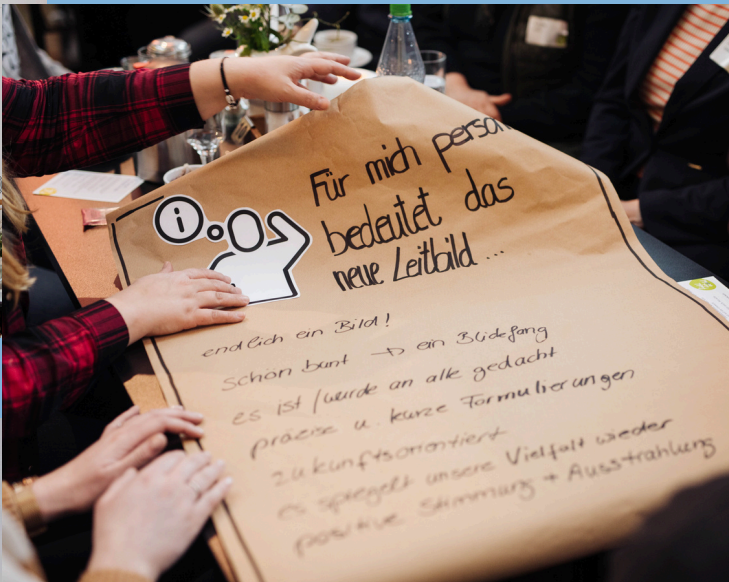 Für mich person
bedeutet das
neue Leitbild...
i
endlich ein Bild!
schön bunt → ein Blickfang
es ist / wurde an alle gedacht
präzise u. kurze Formulierungen
zukunftsorientiert
es spiegelt unsere Vielfalt wieder
positive Stimmung + Ausstrahlung